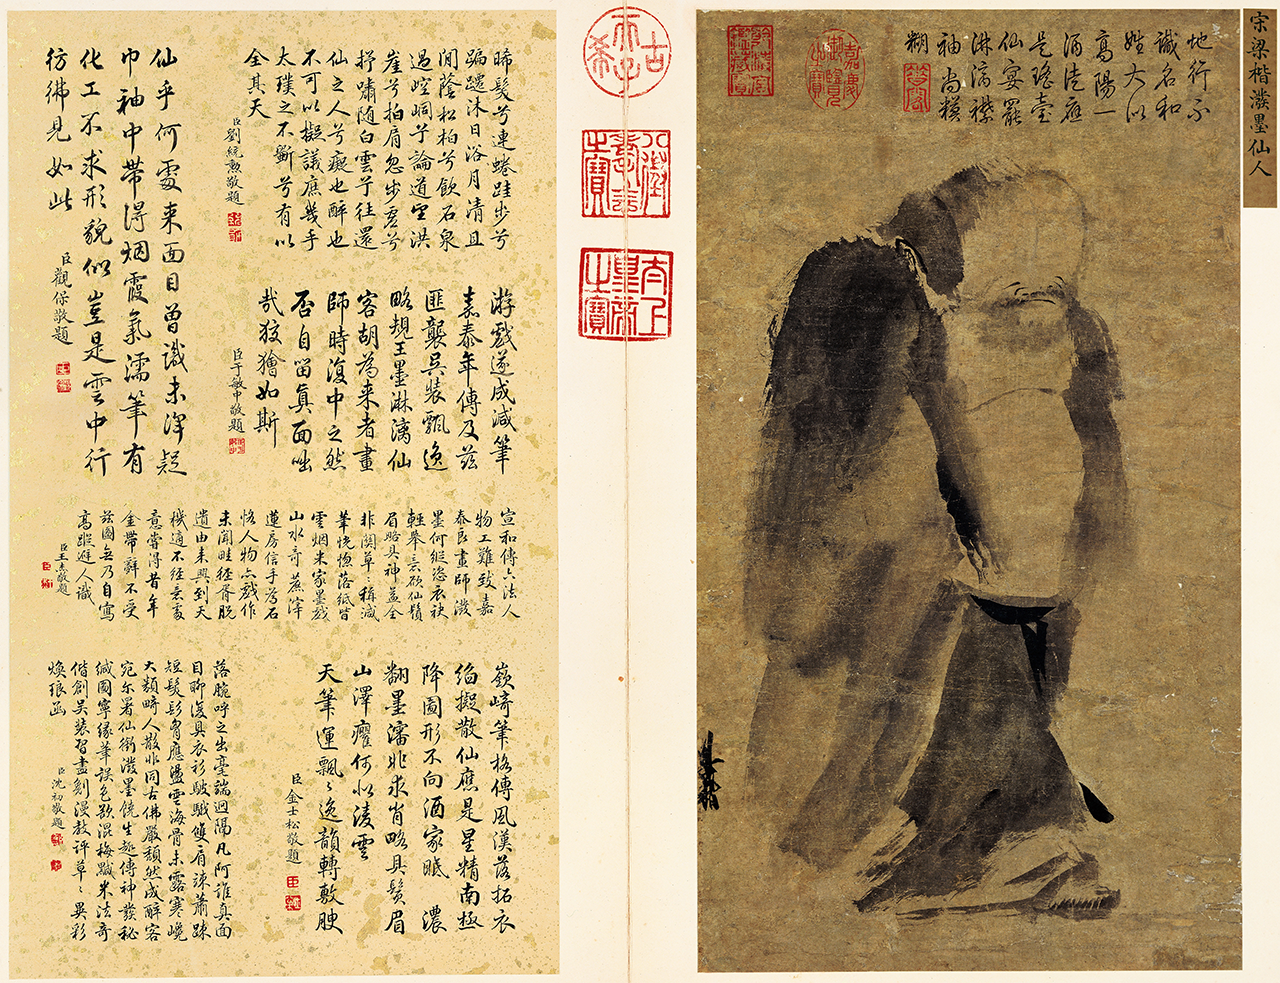 宋梁楷潑墨仙人
地行不
識名和
姓大似
高陽一
酒徒應
是瑤臺
仙宴罷
淋漓襟
袖尚模
糊
嘉慶御覽之寶
古希天子
八徵耄念之寶
太上皇帝之寶
晞髮兮連蜷跬步兮
蹁躚沐日浴月清且
閒蔭松柏兮飲石泉
過崆峒兮論道望洪
崖兮拍肩忽步虛兮
抒嘯随白雲兮往還
仙之人兮癡也醉也
不可以擬議庶幾乎
太璞之不斲兮有以
全其天
臣劉統勳敬題
仙乎何處来面目曾識未浮疑
巾袖中帶得烟霞氣濡筆有
化工不求形貌似豈是雲中行
彷彿見如此
臣觀保敬題
游戲遂成減筆
嘉泰年傳及茲
匪襲吳裝飄逸
略規王墨淋漓仙
客胡為来者畫
師時復中之然
否自留真面咄
哉狡獪如斯
臣于敏中敬題
宣和傳六法人
物工難致嘉
泰良畫師潑
墨何縱恣衣袂
輕舉意欲仙鬚
眉略具神益全
非關草草稱減
筆恍惚落紙皆
雲烟米家墨戲
山水奇蔗滓
蓮房信手為石
恪人物亦戲作
未聞畦徑胥脱
遺由来興到天
機適不徑意處
意嘗得昔年
金帶辭不受
茲圖無乃自寫
高蹤遊人識
臣王杰敬題
嶔崎筆格傳風漢落拓衣
袍擬散仙應是星精南極
降圖形不向酒家眠 濃
翻墨瀋非求肖略具鬚眉
山澤癯何似凌雲
天筆運飄飄逸韻轉敷腴
臣金士松敬題
落腕呼之出毫端迥隔凡阿誰真面
目聊復具衣衫皴皵雙肩竦蕭疎
短髮髟胷應盪雲海骨未露寒巉
大類畸人散非同古佛嚴頹然成醉客
宛尔署仙銜潑墨饒生趣傳神發秘
緘圖寧緣筆誤色欲混梅黬米法奇
偕創吳裝習盡剗漫教評草草異彩
煥琅函
臣沈初敬題